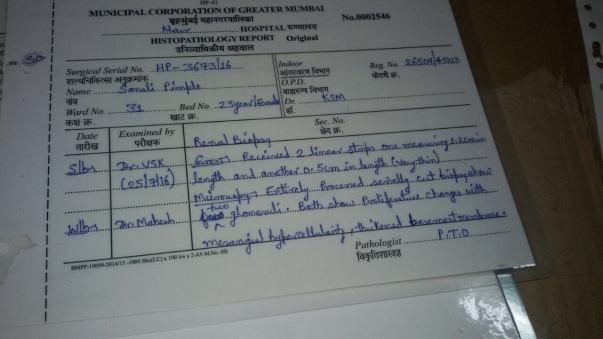 HP-41
MUNICIPAL CORPORATION OF GREATER MUMBAI
बृहन्मुंबई महानगरपालिका
No.0002546
Nair HOSPITAL रुग्णालय
HISTOPATHOLOGY REPORT Original
उनिव्याधिकीय अहवाल
50
Surgical Serial No. HP-3673/16
शल्यचिकित्सा अनुक्रमांक
Indoor Reg. No. 26504/
आंतररुग्ण विभाग नोंदणी क्र.
Name Sonali Pimple
नांव
O.P.D.
बाह्यरुग्ण विभाग
Ward No. 31 Bed No. 23year/Female
कक्ष क्र. खाट क्र.
Dr. KSM
डॉ.
Date Examined by Sec. No.
तारीख परीक्षक छेद क्र.
Renal Biopsy
S/by Dr. VSK Gross: Received 2 linear strips one measuring 1.2cm in
(25/7/16) length and another 0.5cm in length (very thin)
Microscopy: Entirely Processed serially cut biopsy show
two
W/by Dr. Mahesh glomeruli. Both show Proliferative changes with
mesangial hypercellularity, thickened basement membrane.
Pathologist P.T.O
विकृतिशास्त्रज्ञ
BMPP-19099-2014/15 -1000 Bks(LC) x 100 lvs x 2-A5-M.No.-SB